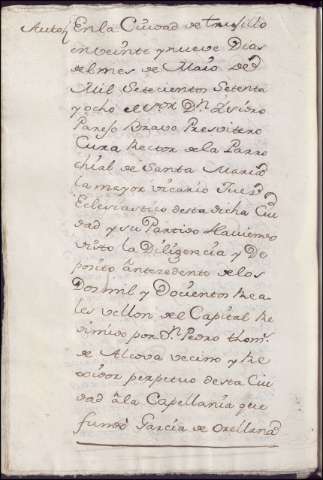 Auto En la Ciudad de trugillo
en veinte y nueve Dias
del mes de Maio de
Mil Setecientos Setenta
y ocho el Sor Dn Isidro
Paresö Bravo Presvitero
Cura Rector de la Parro
chial de Santa Maria
la mayor vicario Juez
Eclesiastico desta dicha Ciu
dad y su Partido Haviendo
visto la Diligencia y De
posito antezedente de los
Dos mil y Docientos Rea
les vellon del Capital Re
dimido por Dn Pedro thoms
de Alcova vecino y Re
xidor perpetuo desta Ciu
dad à la Capellania que
fundò Garcia de Orellana